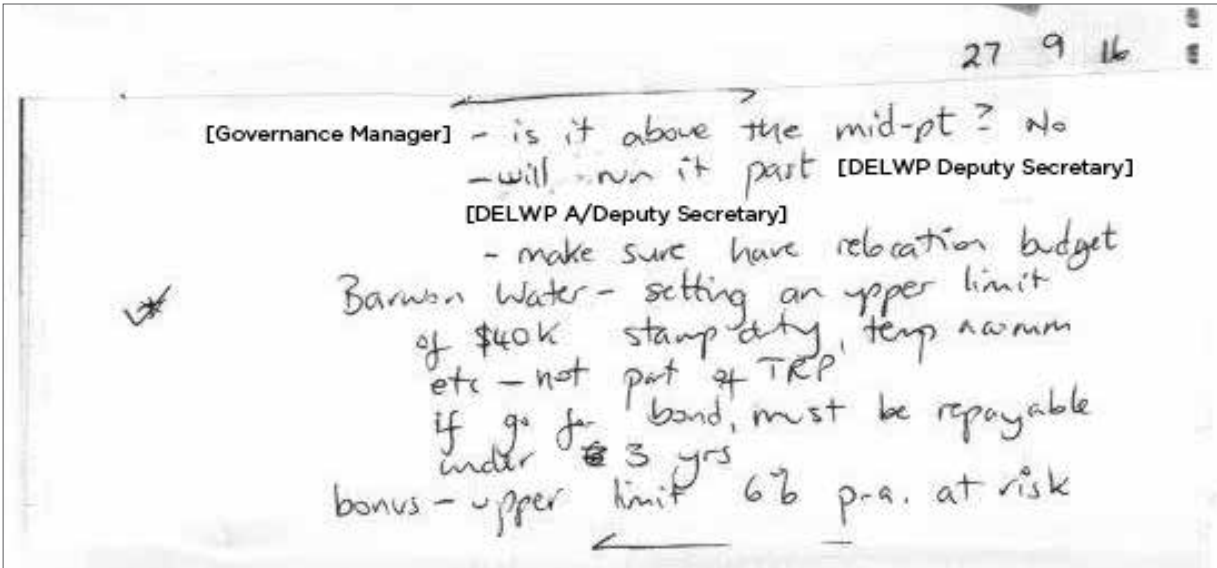 27 9 16
[Governance Manager] - is it above the mid-pt? No
- will run it past [DELWP Deputy Secretary]
[DELWP A/Deputy Secretary]
- make sure have relocation budget
Barwon Water - setting an upper limit
of $40K stamp duty, temp accomm
etc - not part of TRP
if go for bond, must be repayable
under 3 yrs
bonus - upper limit 6% p.a. at risk